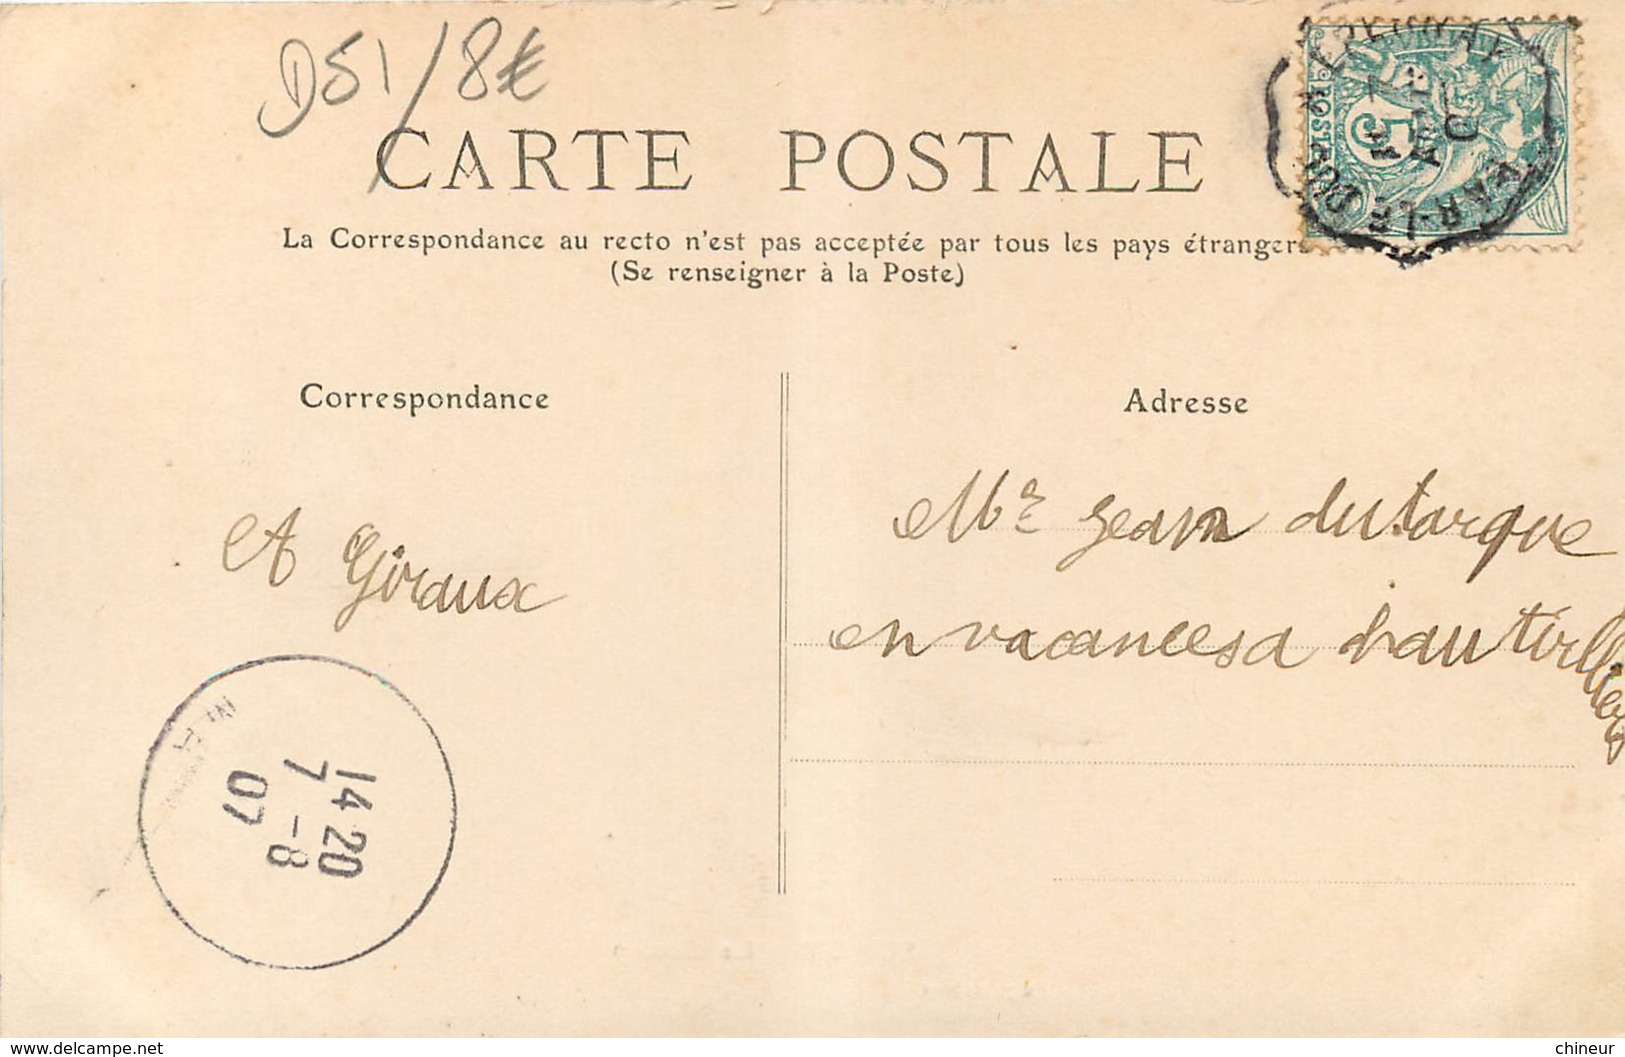 D51/8€
CARTE POSTALE
La Correspondance au recto n'est pas acceptée par tous les pays étrangers
(Se renseigner à la Poste)
Correspondance
Adresse
A Giraux
Mr Jean dutarque
en vacances a hautvillers
5
POSTES
EPERNAY
BAR-LE-DUC
14 20
7 -8
07
chineur